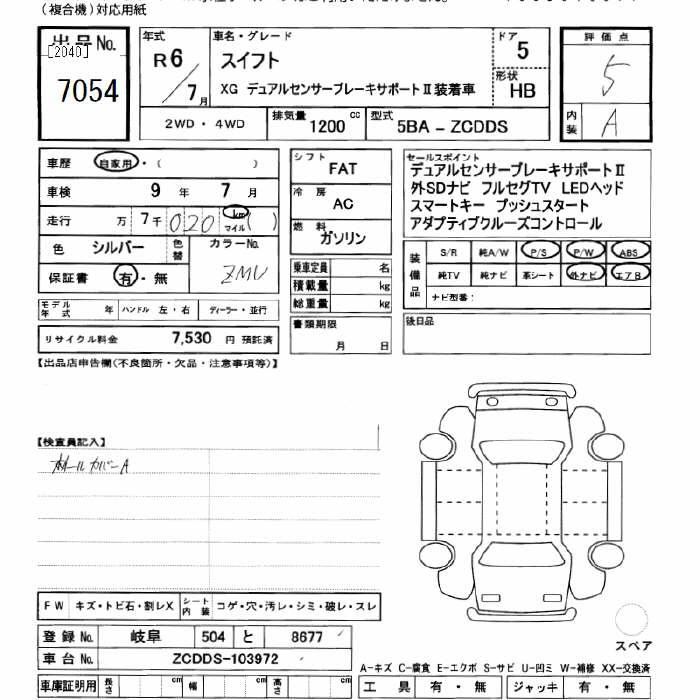 (複合機)対応用紙
出品No.
[2040]
7054
年式
R6/7月
車名・グレード
スイフト
XG デュアルセンサーブレーキサポートⅡ装着車
ドア
5
形状
HB
評価点
5
内装
A
2WD・4WD
排気量 1200 cc
型式 5BA - ZCDDS
車歴 自家用・( )
車検 9年 7月
走行 万 7千 020 km マイル ( )
色 シルバー 色替 カラーNo. ZMU
保証書 有・無
モデル年式 年 ハンドル 左・右 ディーラー・並行
リサイクル料金 7,530 円 預託済
シフト FAT
冷房 AC
燃料 ガソリン
乗車定員 名
積載量 kg
総重量 kg
書類期限
月 日
セールスポイント
デュアルセンサーブレーキサポートⅡ
外SDナビ フルセグTV LEDヘッド
スマートキー プッシュスタート
アダプティブクルーズコントロール
装備品
S/R 純A/W P/S P/W ABS
純TV 純ナビ 革シート 外ナビ エアB
ナビ型番:
後日品
【出品店申告欄(不良箇所・欠品・注意事項等)】
【検査員記入】
ホイールカバーA
FW キズ・トビ石・割レX シート内装 コゲ・穴・汚レ・シミ・破レ・スレ
登録No. 岐阜 504 と 8677
車台No. ZCDDS-103972
車庫証明用 長さ cm 幅 cm 高さ cm
スペア
A-キズ C-腐食 E-エクボ S-サビ U-凹ミ W-補修 XX-交換済
工具 有・無 ジャッキ 有・無